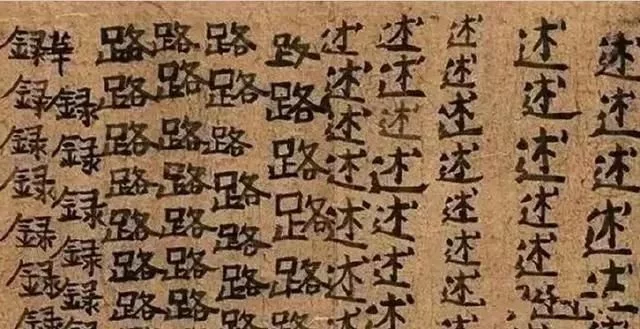 述述述述述述
述述述述述述
述述述述述述述
述述述述述述述
述述述述述述述
路路路路路路
路路路路路路路
路路路路路路路
路路路路路路路
華録録録録録録
録録録録録録録